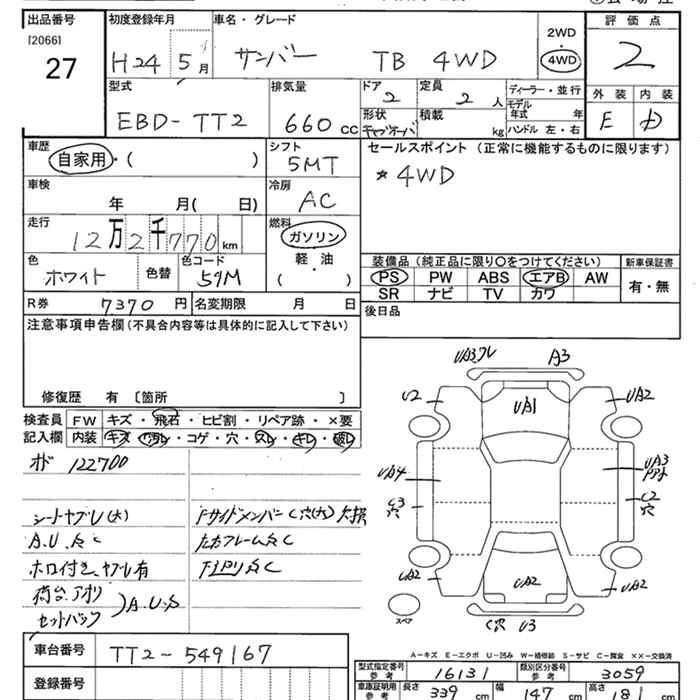 出品番号 初度登録年月 車名・グレード 評価点
[2066] 27 H24 5月 サンバー TB 4WD 2WD・4WD 2
型式 排気量 ドア 定員 ディーラー・並行 外装 内装
EBD-TT2 660cc 2 2人 モデル年式 年 E D
形状 積載 kg ハンドル 左・右
車歴 シフト セールスポイント（正常に機能するものに限ります）
自家用・( ) 5MT *4WD
車検 冷房
年 月( 日) AC
走行 燃料
12万2千770km ガソリン
色 色替 色コード 軽・油
ホワイト 59M ( )
装備品（純正品に限り○をつけてください） 新車保証書
PS PW ABS エアB AW 有・無
SR ナビ TV カワ
R券 7370円 名変期限 月 日
後日品
注意事項申告欄（不具合内容等は具体的に記入して下さい）
修復歴 有 〔箇所 〕
検査員 FW キズ・飛石・ヒビ割・リペア跡・×要
記入欄 内装 キズ・ヨゴレ・コゲ・穴・スレ・キレ・破レ
122700
シートヤブレ(大) Fサイドメンバー C穴(大)欠損
A.U.S C
ホロ付き、ヤブレ有
荷台、アオリ
セットバック A.U.S
UA3ワレ A3
U2 UA1 UA2
UA4 UA3
C3穴 C2穴
UA2 UA2 UA2
スペア
C穴 U3
A-キズ E-エクボ U-凹み W-補修跡 S-サビ C-腐食 ××-交換済
車台番号 TT2-549167
登録番号
型式指定番号 参考 16131 類別区分番号 参考 3059
車庫証明用 参考 長さ 339cm 幅 147cm 高さ 181cm